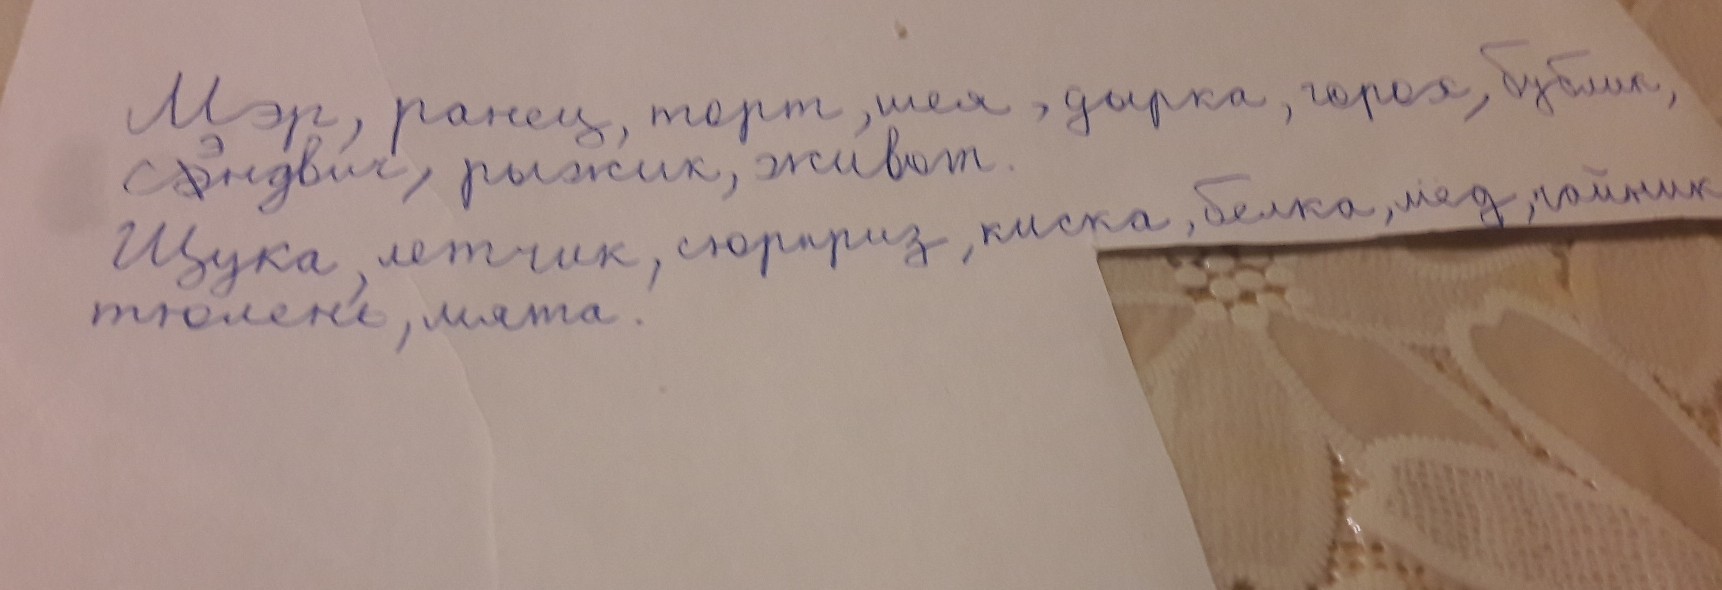 Мэр, ранец, торт, шея, дырка, горох, бублик,
сэндвич, рыжик, живот.
Щука, летчик, сюрприз, киска, белка, мёд, чайник
тюлень, мята.